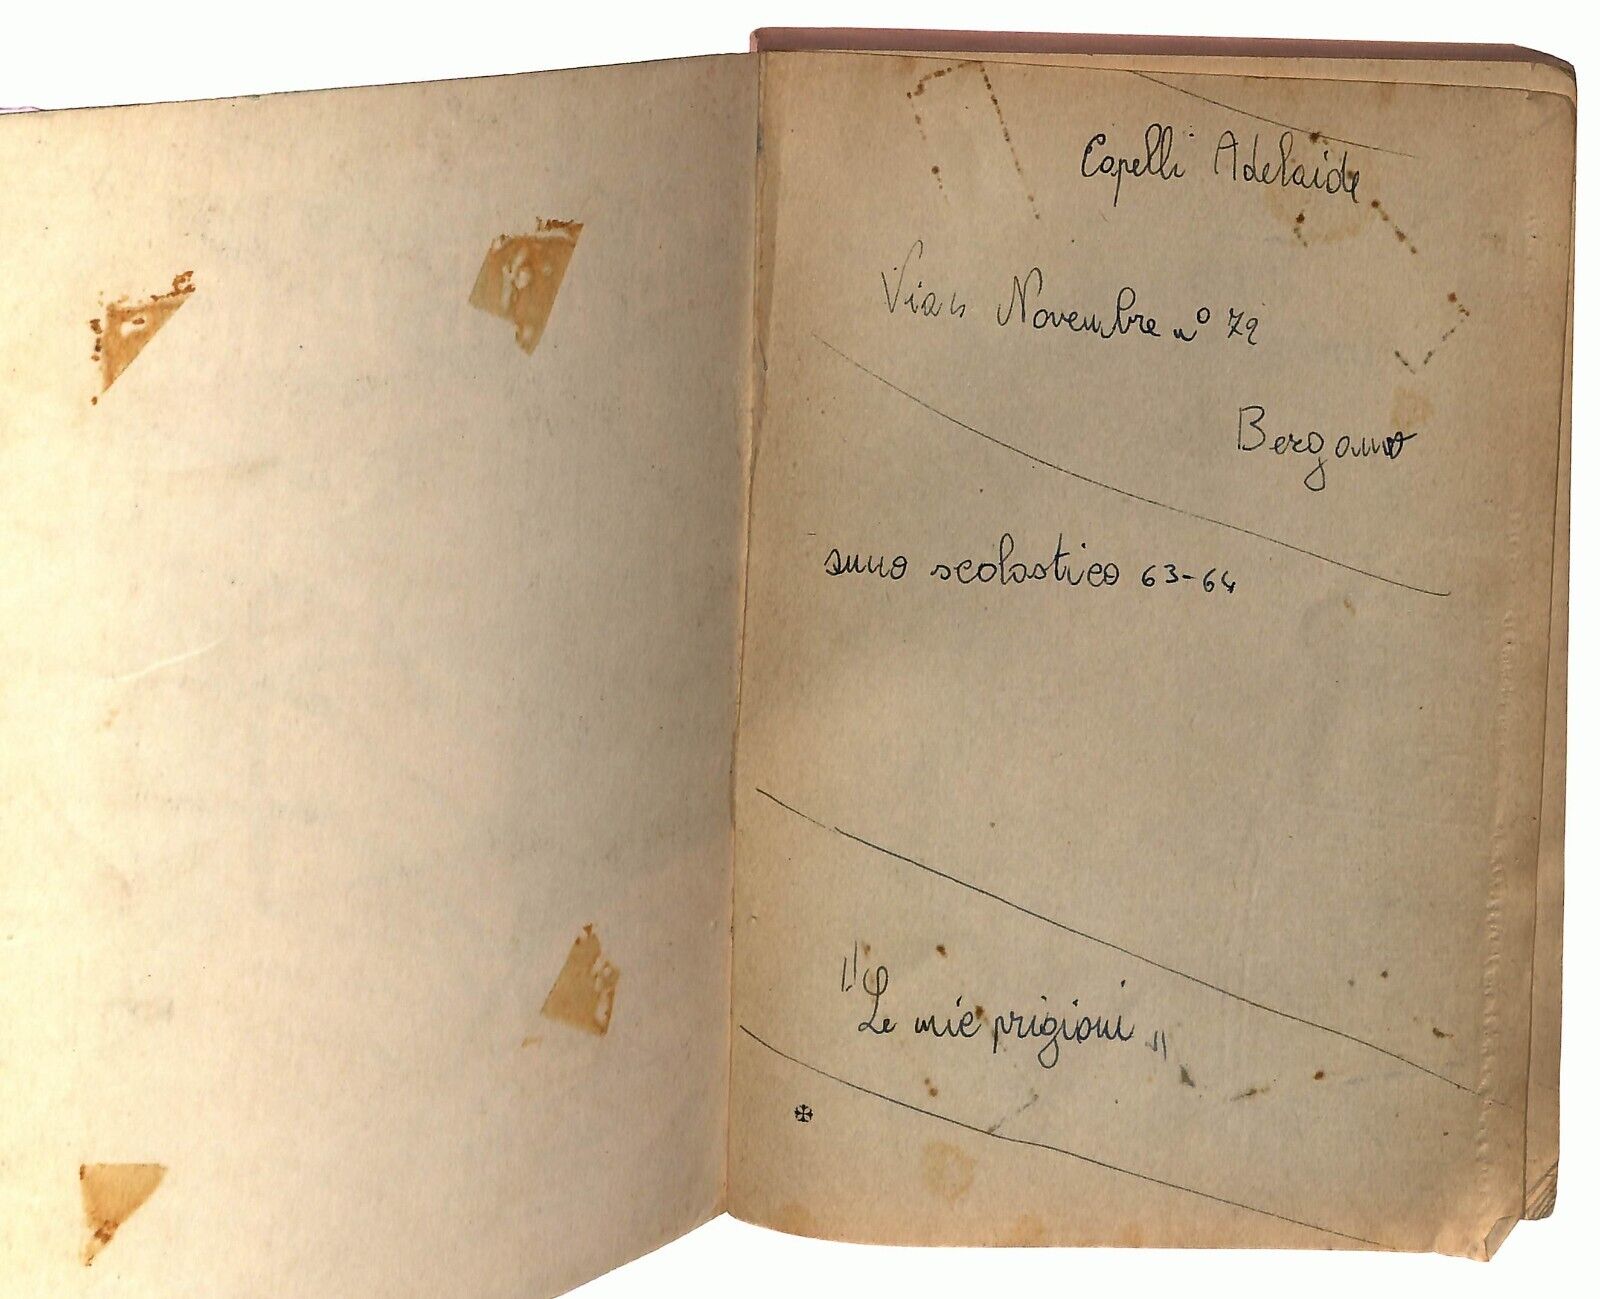 Capelli Adelaide
Via 4 Novembre n° 72
Bergamo
anno scolastico 63-64
"Le mie prigioni"